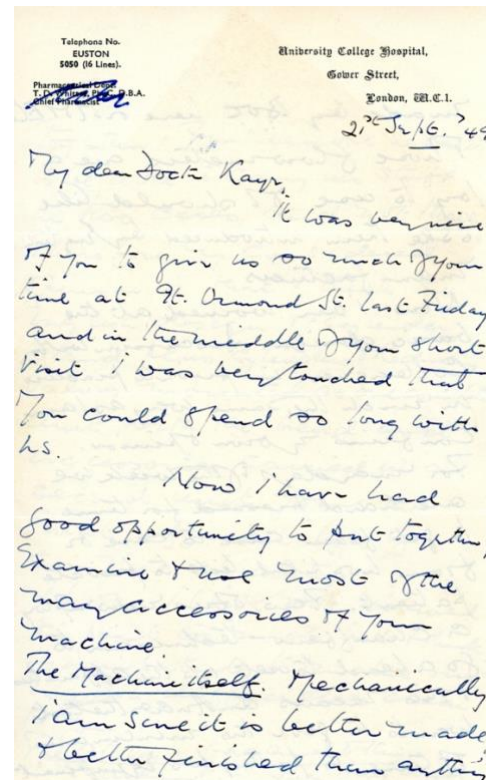 Telephone No.
EUSTON
5050 (16 Lines).
Pharmaceutical Dept.
T. D. Whittet, Ph.C., D.B.A.
Chief Pharmacist
University College Hospital,
Gower Street,
London, W.C.1.
21st Sept. '49
My dear Doctor Kaye,
It was very nice
of you to give us so much of your
time at Gt. Ormond St. last Friday
and in the middle of your short
visit I was very touched that
you could spend so long with
us.
Now I have had
good opportunity to put together,
examine & use most of the
many accessories of your
machine
The Machine itself. Mechanically
I am sure it is better made
& better finished than